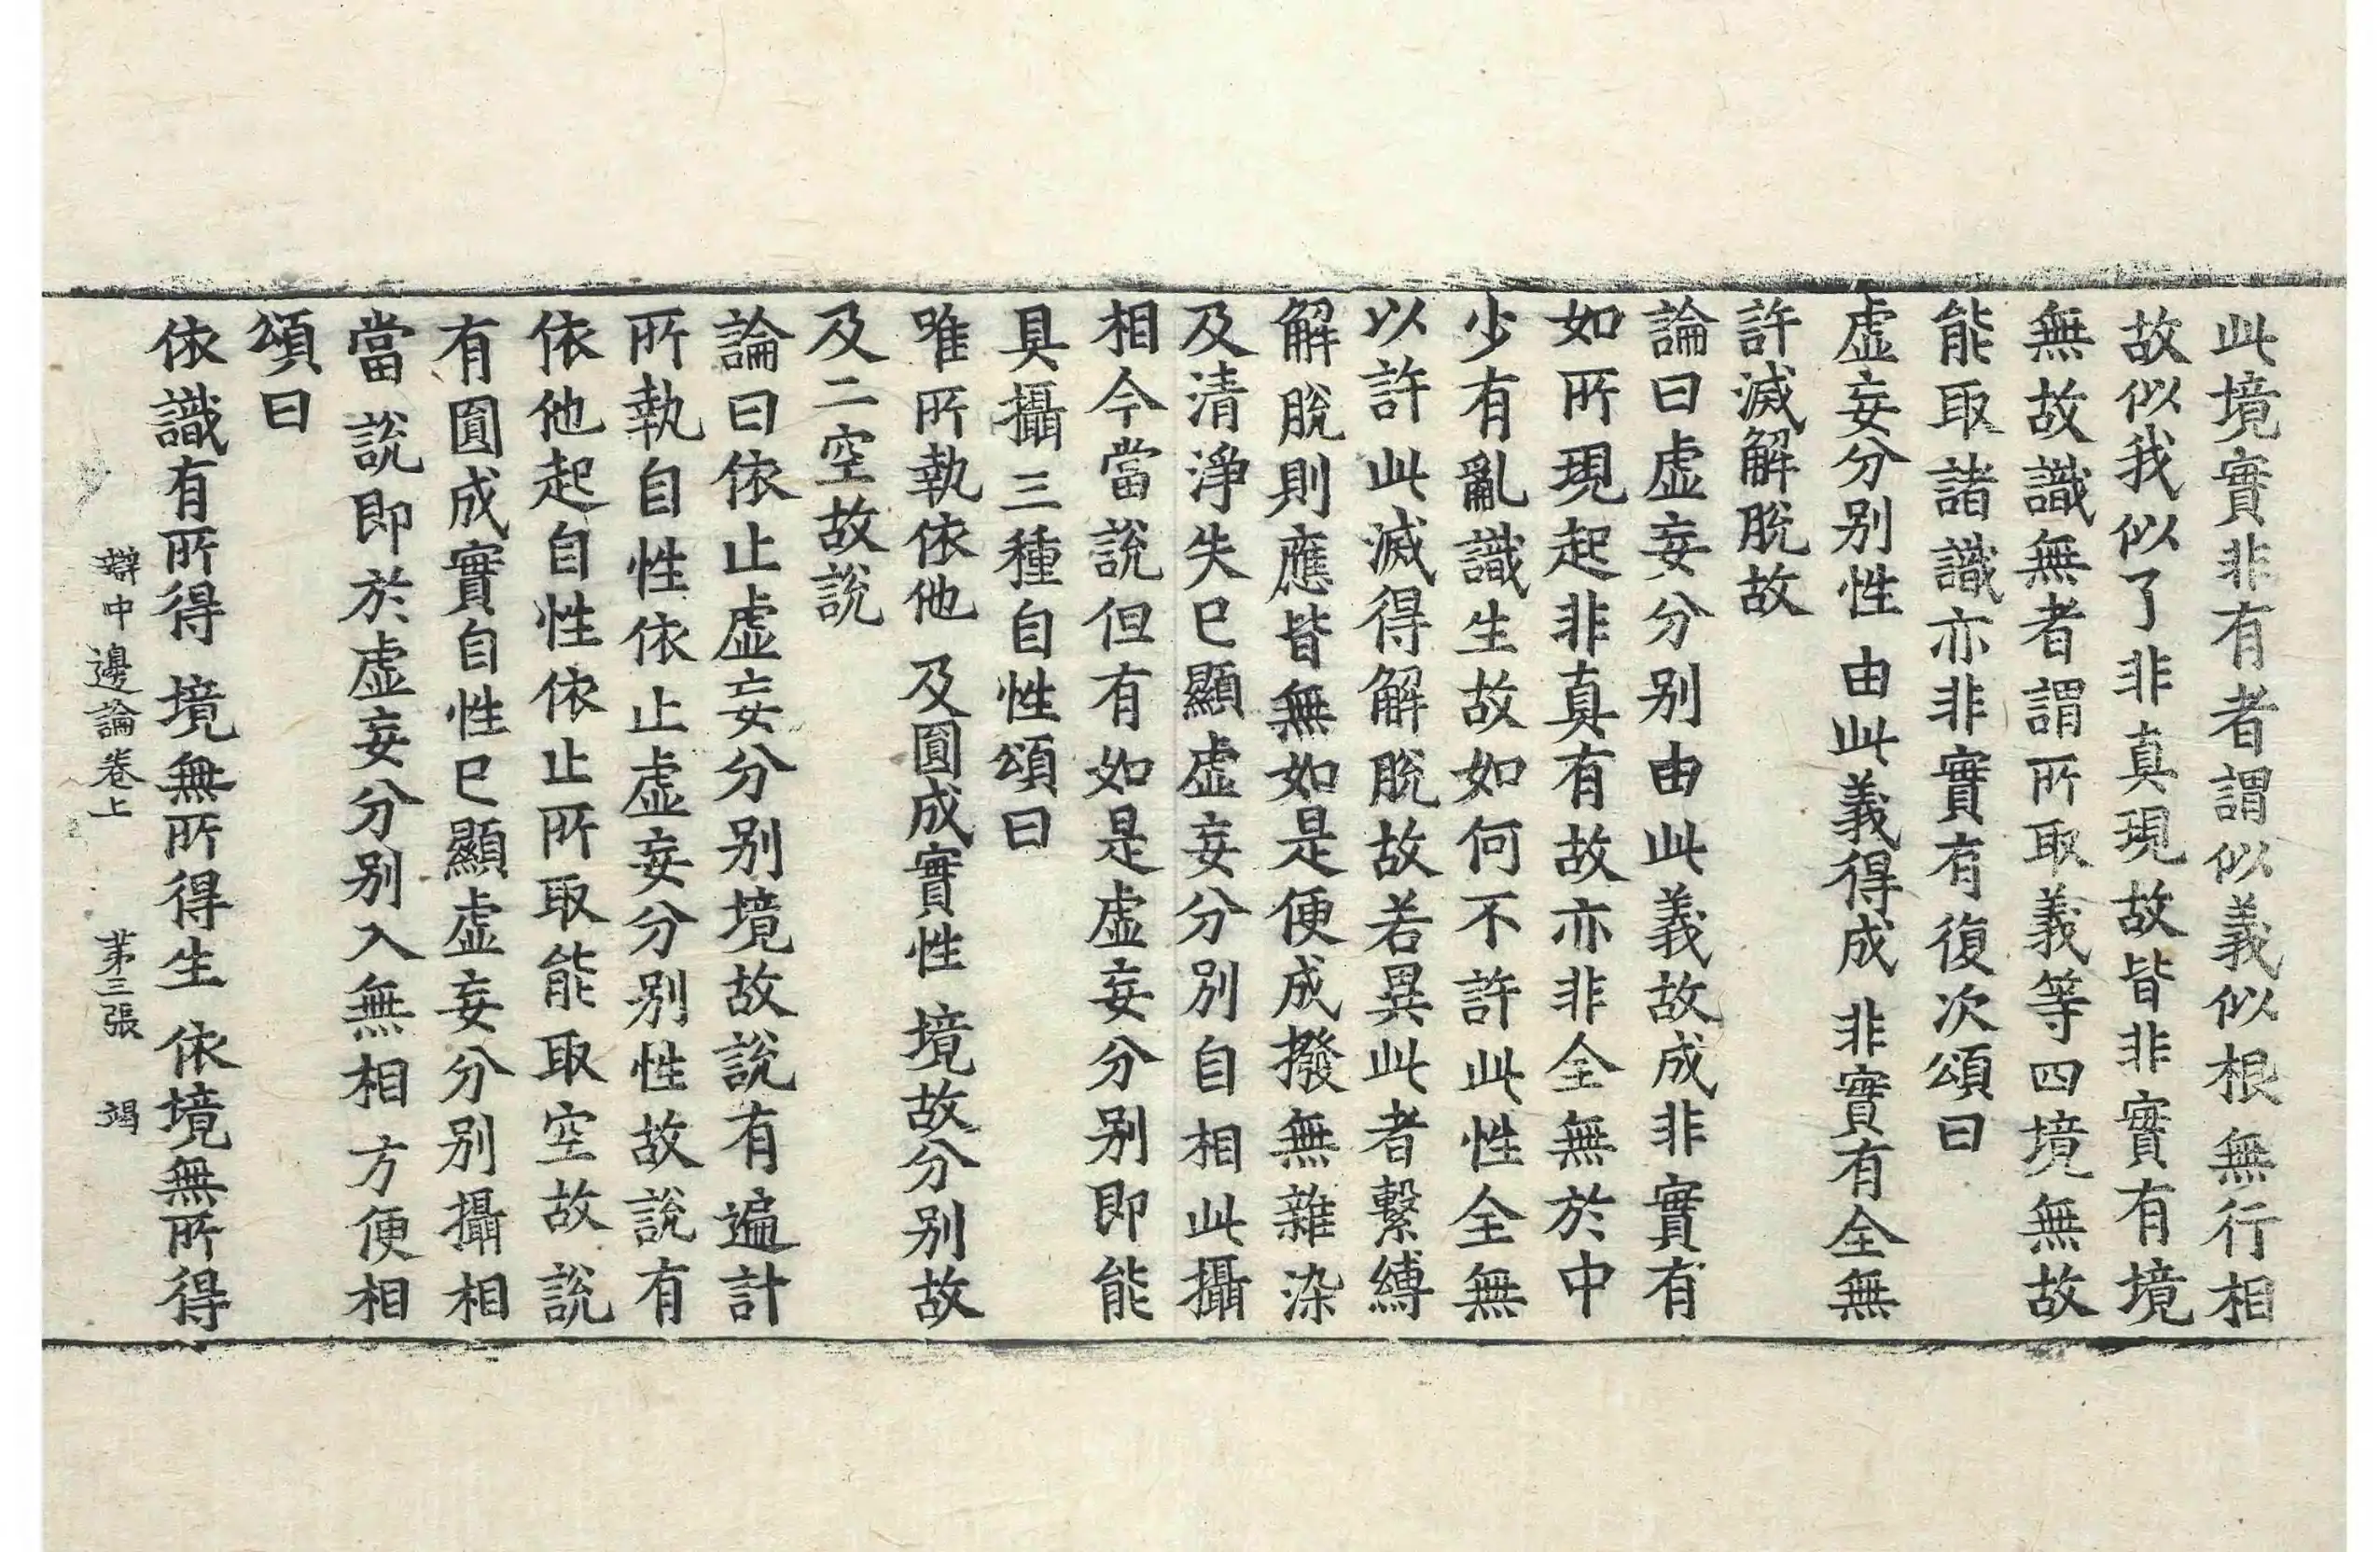 此境實非有者謂似義似根無行相
故似我似了非真現故皆非實有境
無故識無者謂所取義等四境無故
能取諸識亦非實有復次頌曰
虛妄分別性 由此義得成 非實有全無
許滅解脫故
論曰虛妄分別由此義故成非實有
如所現起非真有故亦非全無於中
少有亂識生故如何不許此性全無
以許此滅得解脫故若異此者繫縛
解脫則應皆無如是便成撥無雜染
及清淨失已顯虛妄分別自相此攝
相今當說但有如是虛妄分別即能
具攝三種自性頌曰
唯所執依他 及圓成實性 境故分別故
及二空故說
論曰依止虛妄分別境故說有遍計
所執自性依止虛妄分別性故說有
依他起自性依止所取能取空故說
有圓成實自性已顯虛妄分別攝相
當說即於虛妄分別入無相方便相
頌曰
依識有所得 境無所得生 依境無所得
辯中邊論卷上 苐三張 竭